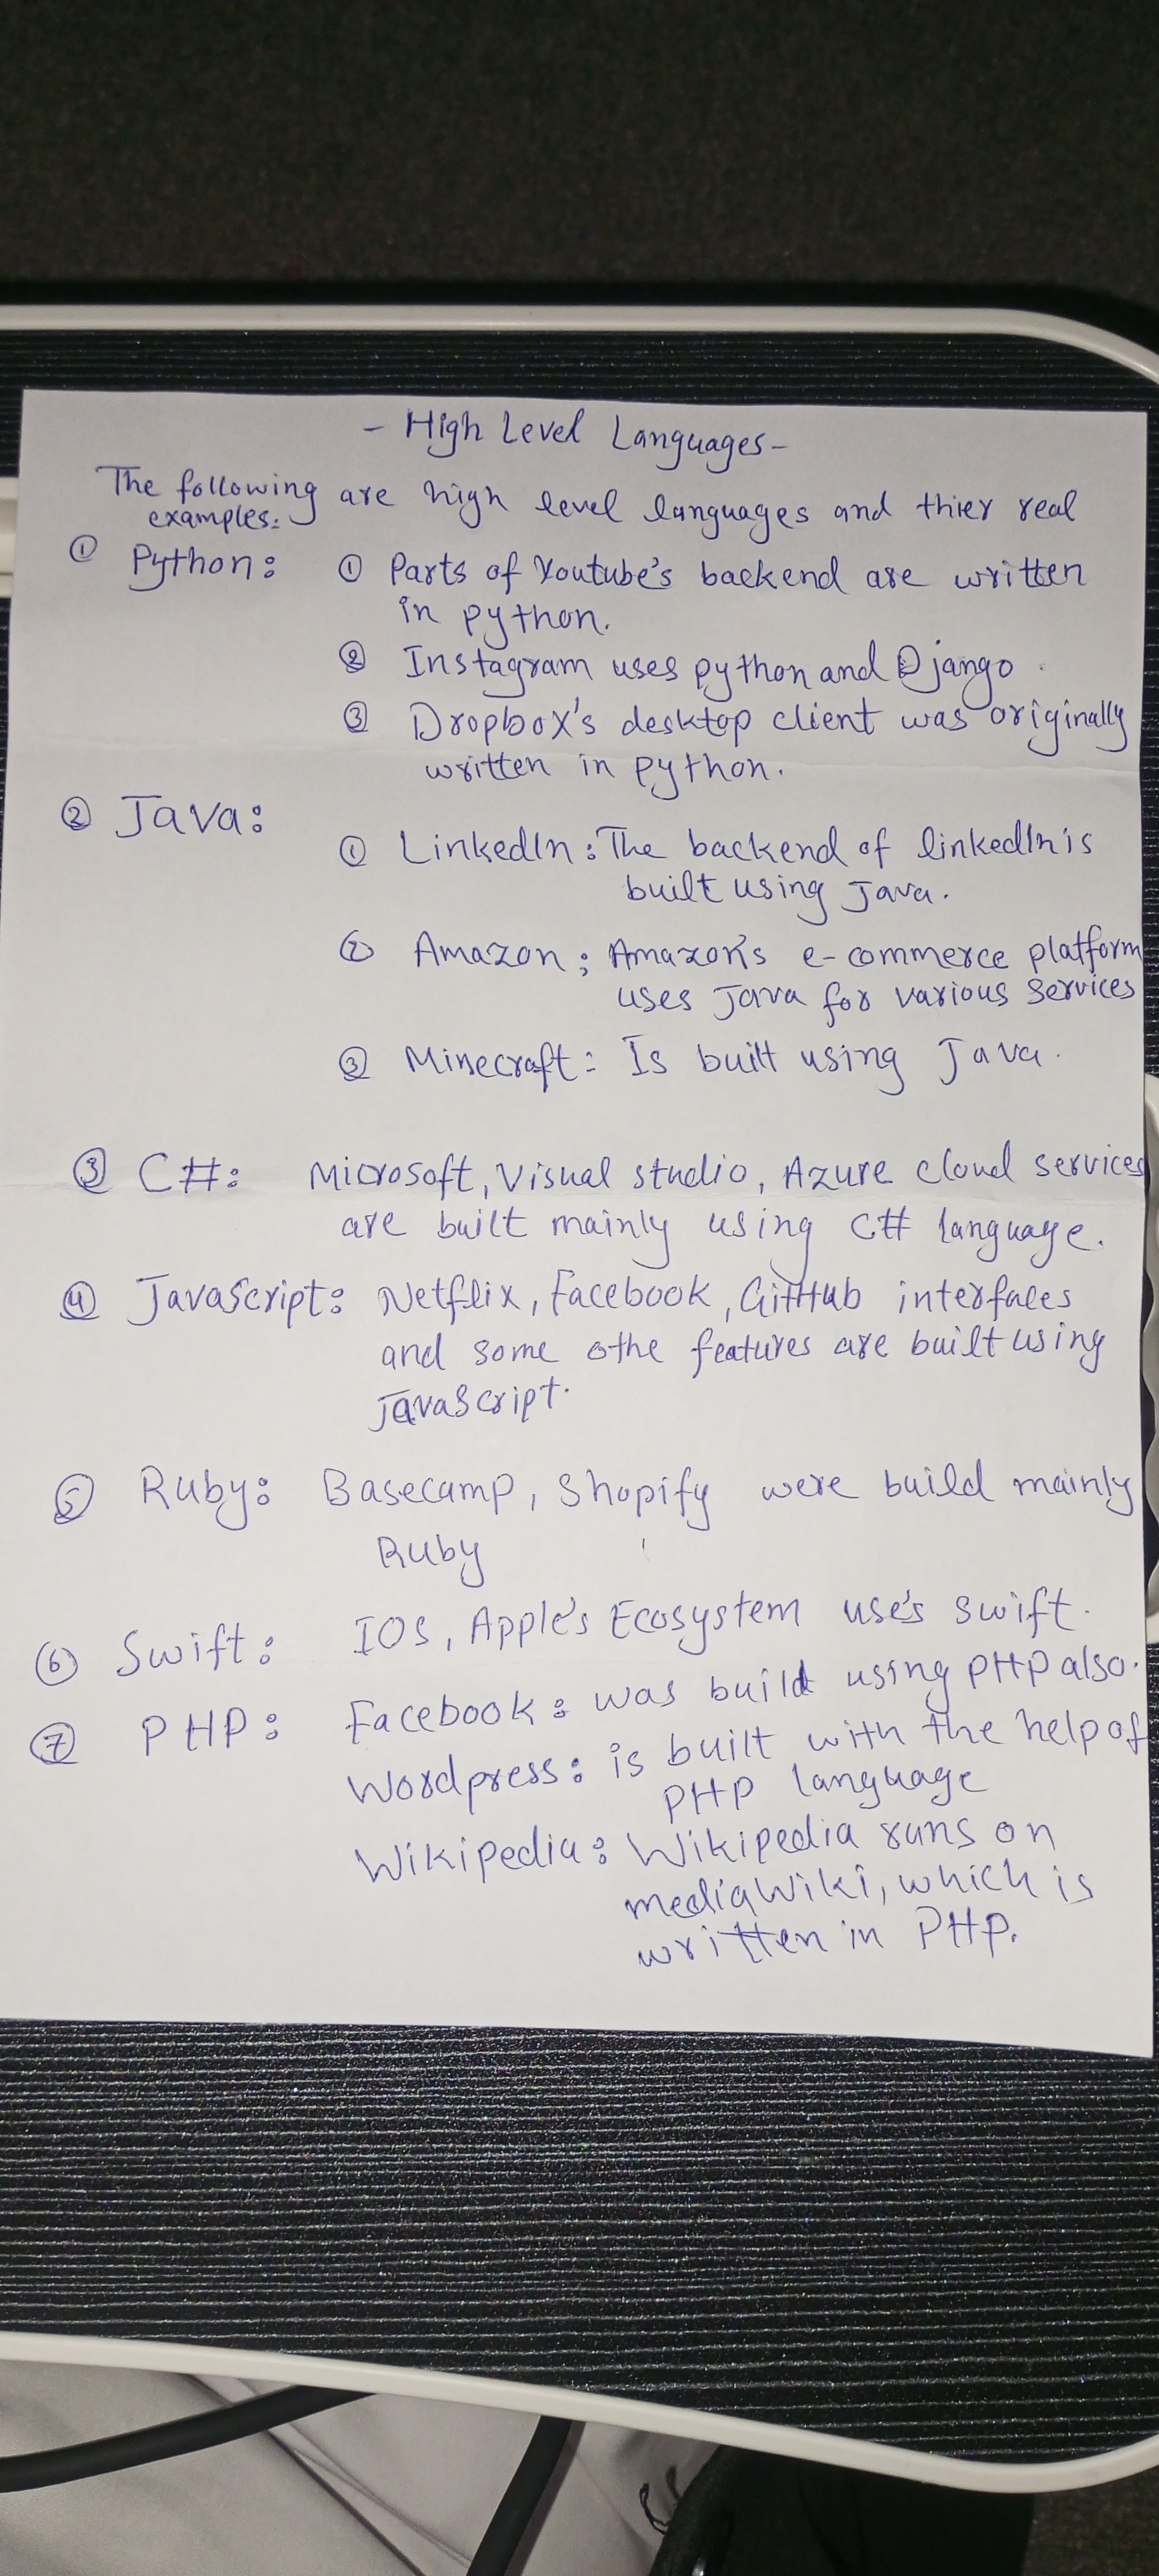 - High Level Languages -
The following are high level languages and thier real
examples:
① Python: ① Parts of Youtube's backend are written
in python.
② Instagram uses python and Django.
③ Dropbox's desktop client was originally
written in python.
② Java:
① LinkedIn: The backend of linkedIn is
built using Java.
② Amazon; Amazon's e-commerce platform
uses Java for various services
③ Minecraft: Is built using Java.
③ C#: Microsoft, Visual studio, Azure cloud services
are built mainly using C# language.
④ JavaScript: Netflix, Facebook, GitHub interfaces
and some othe features are built using
JavaScript.
⑤ Ruby: Basecamp, Shopify were build mainly
Ruby
⑥ Swift: IOS, Apple's Ecosystem use's swift.
⑦ PHP: Facebook: was build using PHP also.
Wordpress: is built with the help of
PHP language
Wikipedia: Wikipedia runs on
mediaWiki, which is
written in PHP.